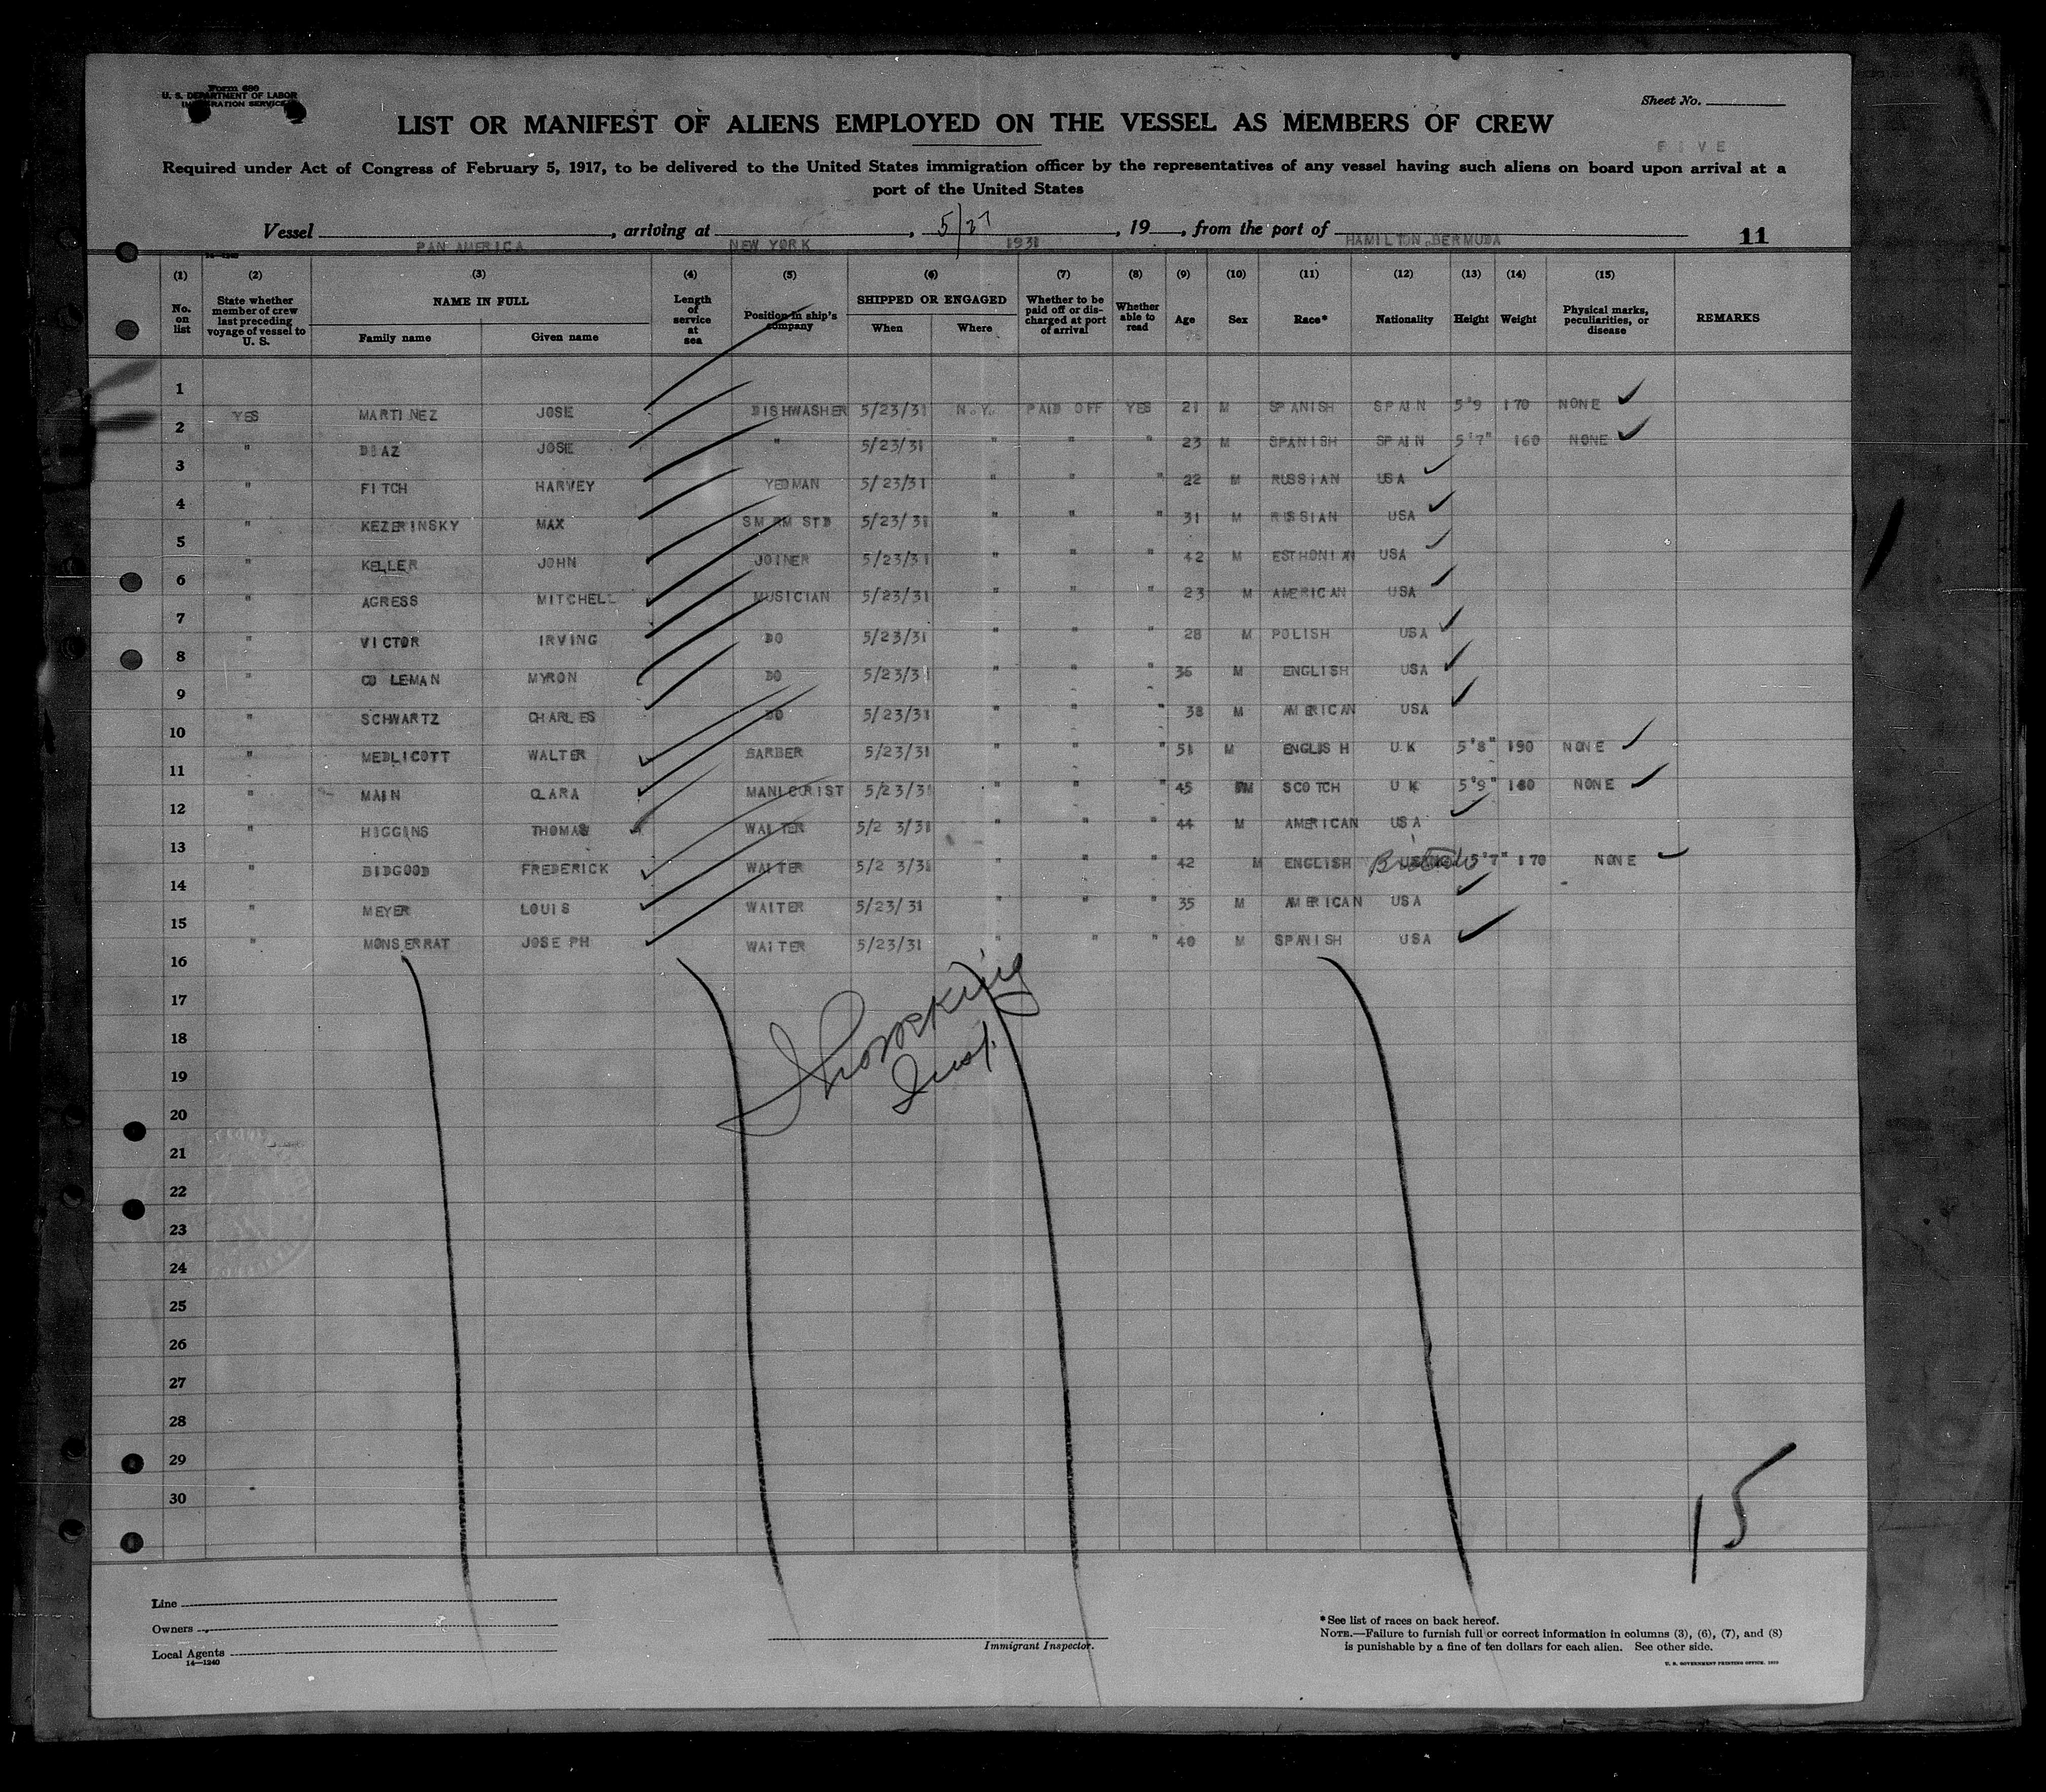 Form 680
U. S. DEPARTMENT OF LABOR
IMMIGRATION SERVICE
Sheet No.
FIVE
LIST OR MANIFEST OF ALIENS EMPLOYED ON THE VESSEL AS MEMBERS OF CREW
Required under Act of Congress of February 5, 1917, to be delivered to the United States immigration officer by the representatives of any vessel having such aliens on board upon arrival at a
port of the United States
Vessel PAN AMERICA, arriving at NEW YORK, 5/27 1931, 19 , from the port of HAMILTON, BERMUDA 11
14—1240
(1) (2) (3) (4) (5) (6) (7) (8) (9) (10) (11) (12) (13) (14) (15)
No. on list State whether member of crew last preceding voyage of vessel to U. S. NAME IN FULL Family name Given name Length of service at sea Position in ship's company SHIPPED OR ENGAGED When Where Whether to be paid off or discharged at port of arrival Whether able to read Age Sex Race* Nationality Height Weight Physical marks, peculiarities, or disease REMARKS
1 YES MARTINEZ JOSE DISHWASHER 5/23/31 N.Y. PAID OFF YES 21 M SPANISH SPAIN 5'9 170 NONE
2 " DIAZ JOSE " 5/23/31 " " " 23 M SPANISH SPAIN 5'7" 160 NONE
3 " FITCH HARVEY YEOMAN 5/23/31 " " " 22 M RUSSIAN USA
4 " KEZERINSKY MAX SM RM STD 5/23/31 " " " 31 M RUSSIAN USA
5 " KELLER JOHN JOINER 5/23/31 " " " 42 M ESTHONIAN USA
6 " AGRESS MITCHELL MUSICIAN 5/23/31 " " " 23 M AMERICAN USA
7 " VICTOR IRVING DO 5/23/31 " " " 28 M POLISH USA
8 " COLEMAN MYRON DO 5/23/31 " " " 36 M ENGLISH USA
9 " SCHWARTZ CHARLES DO 5/23/31 " " " 38 M AMERICAN USA
10 " MEDLICOTT WALTER BARBER 5/23/31 " " " 51 M ENGLISH U K 5'8" 190 NONE
11 " MAIN CLARA MANICURIST 5/23/31 " " " 45 SCOTCH U K 5'9" NONE
12 " HIGGINS THOMAS WAITER 5/2 3/31 " " " 44 M AMERICAN USA
13 " BIDGOOD FREDERICK WAITER 5/2 3/31 " " " 42 M ENGLISH British 5'7" 170 NONE
14 " MEYER LOUIS WAITER 5/23/31 " " " 35 M AMERICAN USA
15 " MONSERRAT JOSEPH WAITER 5/23/31 " " " 40 M SPANISH USA
16
17
18
19
20
21
22
23
24
25
26
27
28
29
30
Insp.
15
Line
Owners
Local Agents
14—1240
Immigrant Inspector.
*See list of races on back hereof.
NOTE.—Failure to furnish full or correct information in columns (3), (6), (7), and (8)
is punishable by a fine of ten dollars for each alien. See other side.
U. S. GOVERNMENT PRINTING OFFICE